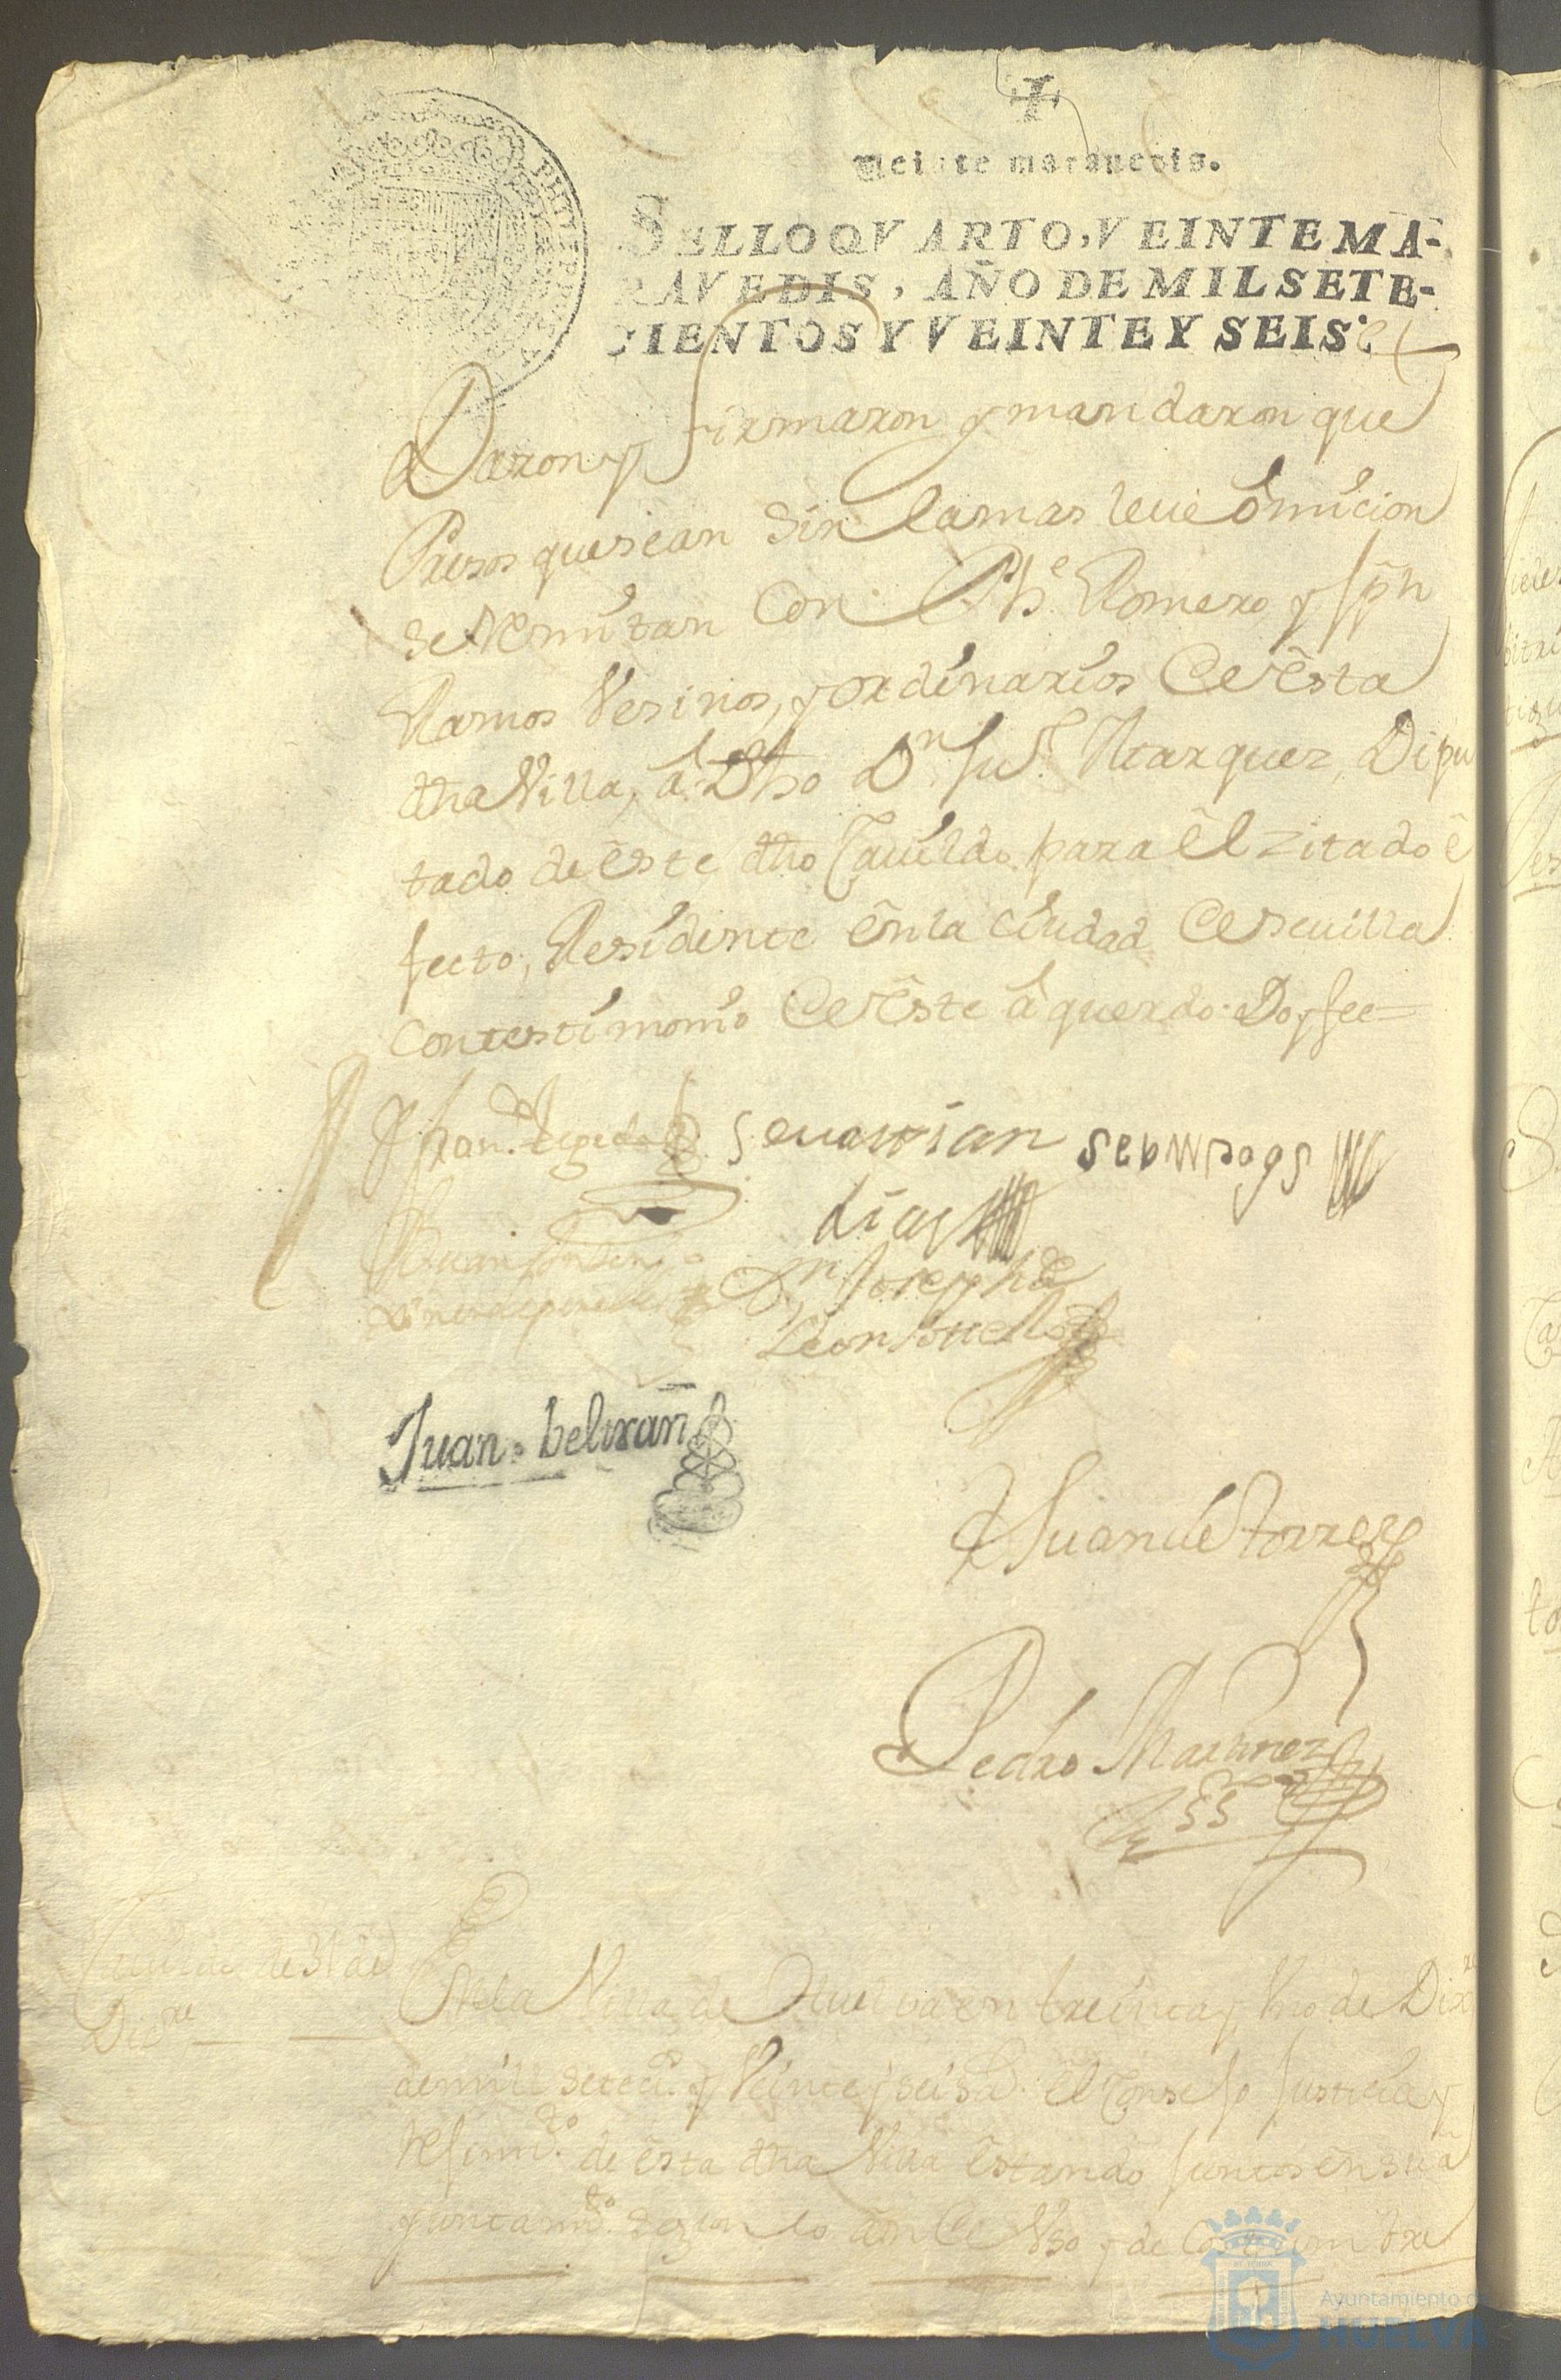 Veinte maravedis.
SELLO QVARTO, VEINTE MA-
RAVEDIS, AÑO DE MIL SETE-
CIENTOS Y VEINTE Y SEIS.
daron y firmaron y mandaron que
Presos que sean sin la mas leue omicion
se Remitan con Phe Romero y Jph
Ramos Vesinos, y ordinarios de esta
dha Villa, â dho Dn Juº Marquez, Dipu
tado de este dho Cauildo para êl zitado ê
fecto, Residente ên la ciudad de seuilla
con testimonio de êste âquerdo. Doy fee=
seuastian
dias
Dn Joseph de
Leon
Juan beltran
Juan de torres
Pedro Martinez
Cauildo de 31 de
Dicre
En la Villa de Huelva en treinta y Vno de Dixre
de mill setecs. y Veinte y seis as. el Conseso Justicia y
Resimto. de êsta dha Villa êstando Juntos ên su â
yuntamto. segun lo ân de Vso y de Costumbre
Ayuntamiento de
HUELVA